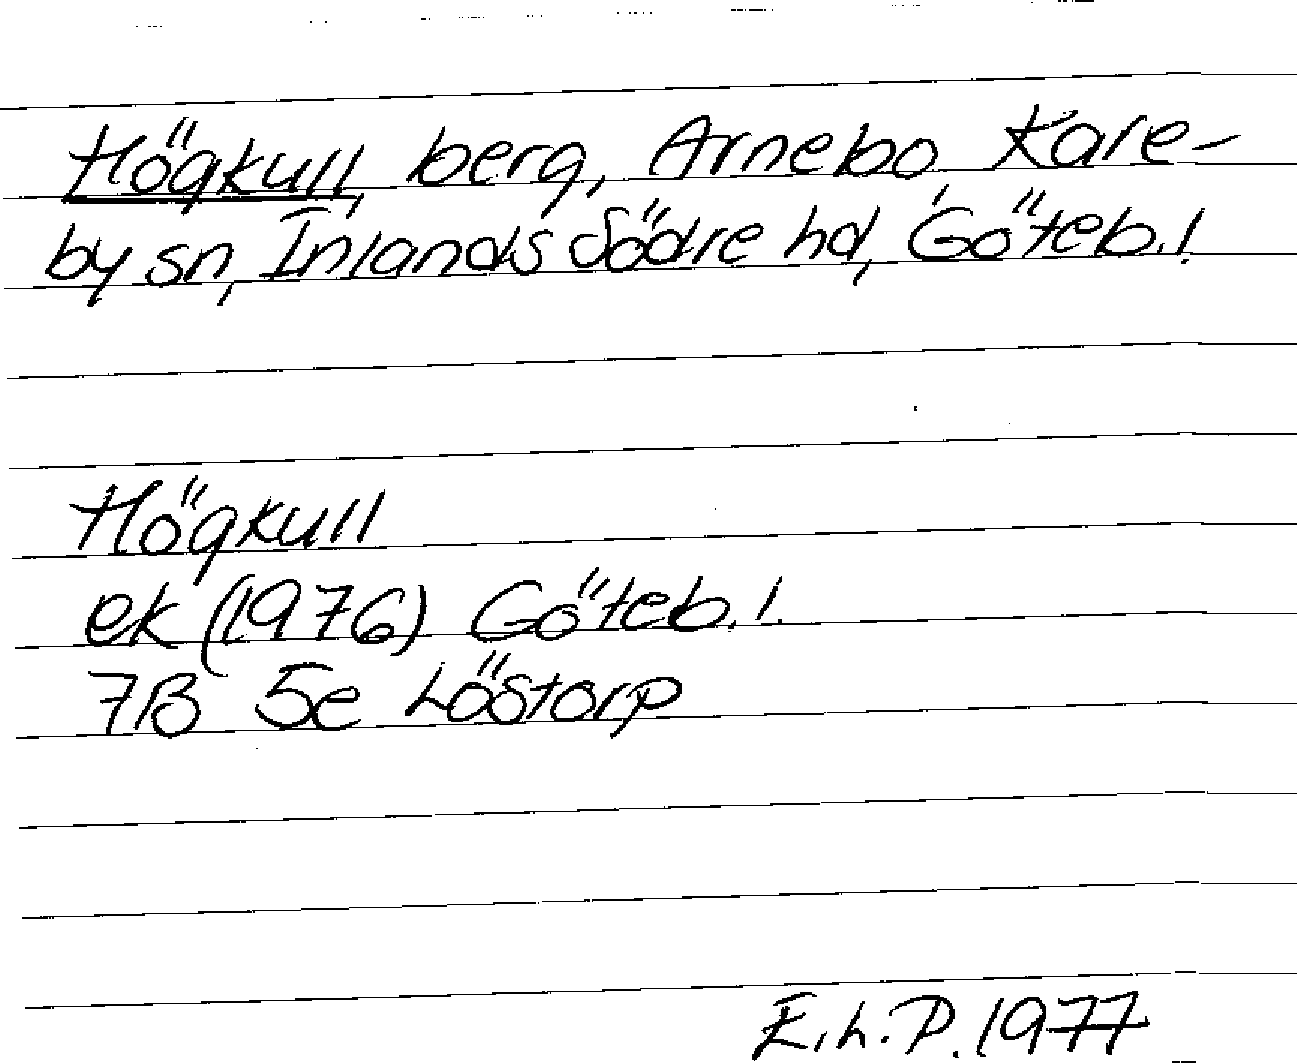 Högkull, berg, Arnebo Kare-
by sn, Inlands Södre hd, Göteb.l.
Högkull
ek (1976) Göteb.l.
7B 5e Löstorp
E.L.P. 1977